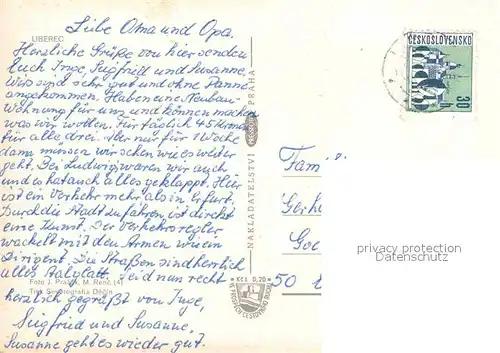 LIBEREC
Liebe Oma und Opa.
Herzliche Grüße von hier senden
Euch Inge, Siegfried und Susanne.
Wir sind sehr gut und ohne Panne
angekommen. Haben eine Neubau-
wohnung für uns und können machen
was wir wollen. Für täglich 45 Kronen
für alle drei. Aber nur für 1 Woche
dann müssen wir sehen wie es weiter
geht. Bei Ludwigs waren wir auch
und es hat auch alles geklappt. Hier
ist ein Verkehr mehr als in Erfurt.
Durch die Stadt zu fahren, ist direkt
eine Kunst. Der Verkehrsregler
wackelt mit den Armen wie ein
Dirigent. Die Straßen sind herrlich
alles Asfalt. Seid nun recht
Foto J. Prášek, M. Renč (4)
Tisk Severografia Děčín
herzlich gegrüßt von Inge,
Siegfried und Susanne.
Susanne geht es wieder gut.
NAKLADATELSTVÍ PRAHA
Kčs 0,20
ČESKOSLOVENSKO
30
Fam
Gerh
50
privacy protection
Datenschutz